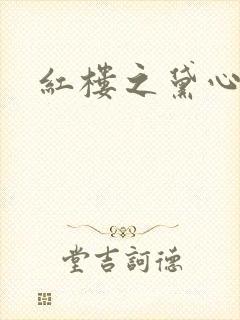 紅樓之黛心
堂吉訶德